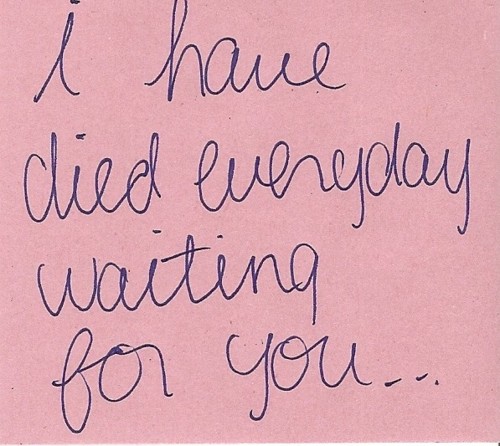 i have
died everyday
waiting
for you...